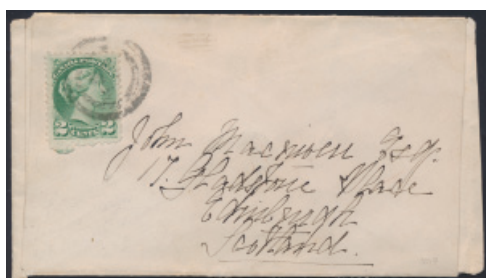 CANADA POSTAGE
2 CENTS 2
John Macniven Esq.
17. Gladstone Place
Edinburgh
Scotland.